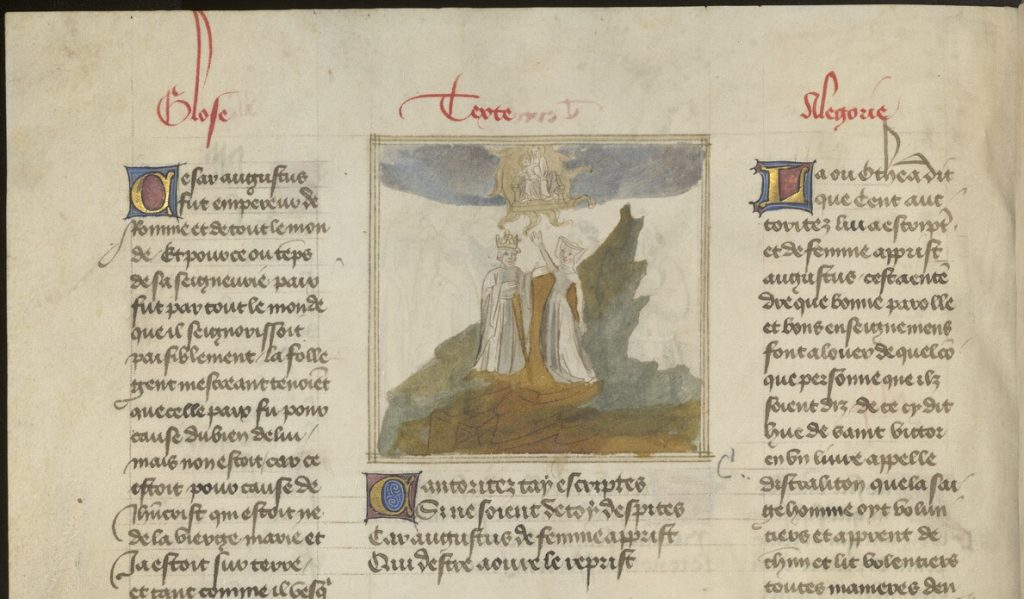 Glose
Cesar augustus
fut empereur de
Romme et de tout le mon
de Et pour ce ou teps
de sa seigneurie paix
fut par tout le monde
que il seignorissoit
paisiblement la folle
gent mescreant tenoiet
que celle paix fu pour
cause du bien de lui
mais non estoit car ce
estoit pour cause de
ihucrist qui estoit ne
de la vierge marie et
Ja estoit sur terre
et tant comme il vesq
Texte
C autoritez tay escriptes
Si ne soient de toy despites
Car augustus de femme apprist
Qui destre aoure le reprist
Alegorie
La ou Othea dit
que Cent auc
toritez lui a escript
et de femme apprist
augustus cest a ente
dre que bonne parolle
et bons enseignemens
font a louer de quelco
que personne que ilz
soient diz de ce cy dit
hue de saint victor
en vn liure appelle
didascaliton que la sai
ge homme oyt volun
tiers et apprent de
chun et lit volentiers
toutes manieres den